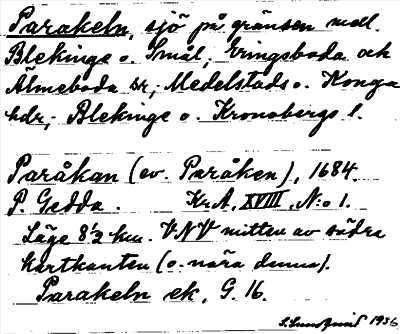 Parakeln, sjö på gränsen mell.
Blekinge o. Smål, Eringsboda och
Älmeboda sr, Medelstads o. Konga
hdr, Blekinge o. Kronobergs l.
Paråkan (ev. Paråken), 1684.
P. Gedda. Kr A, XVIII, N:o 1.
Läge 8½ km. VNV mitten av södra
kartkanten (o. nära denna).
Parakeln ek, G. 16.
1936